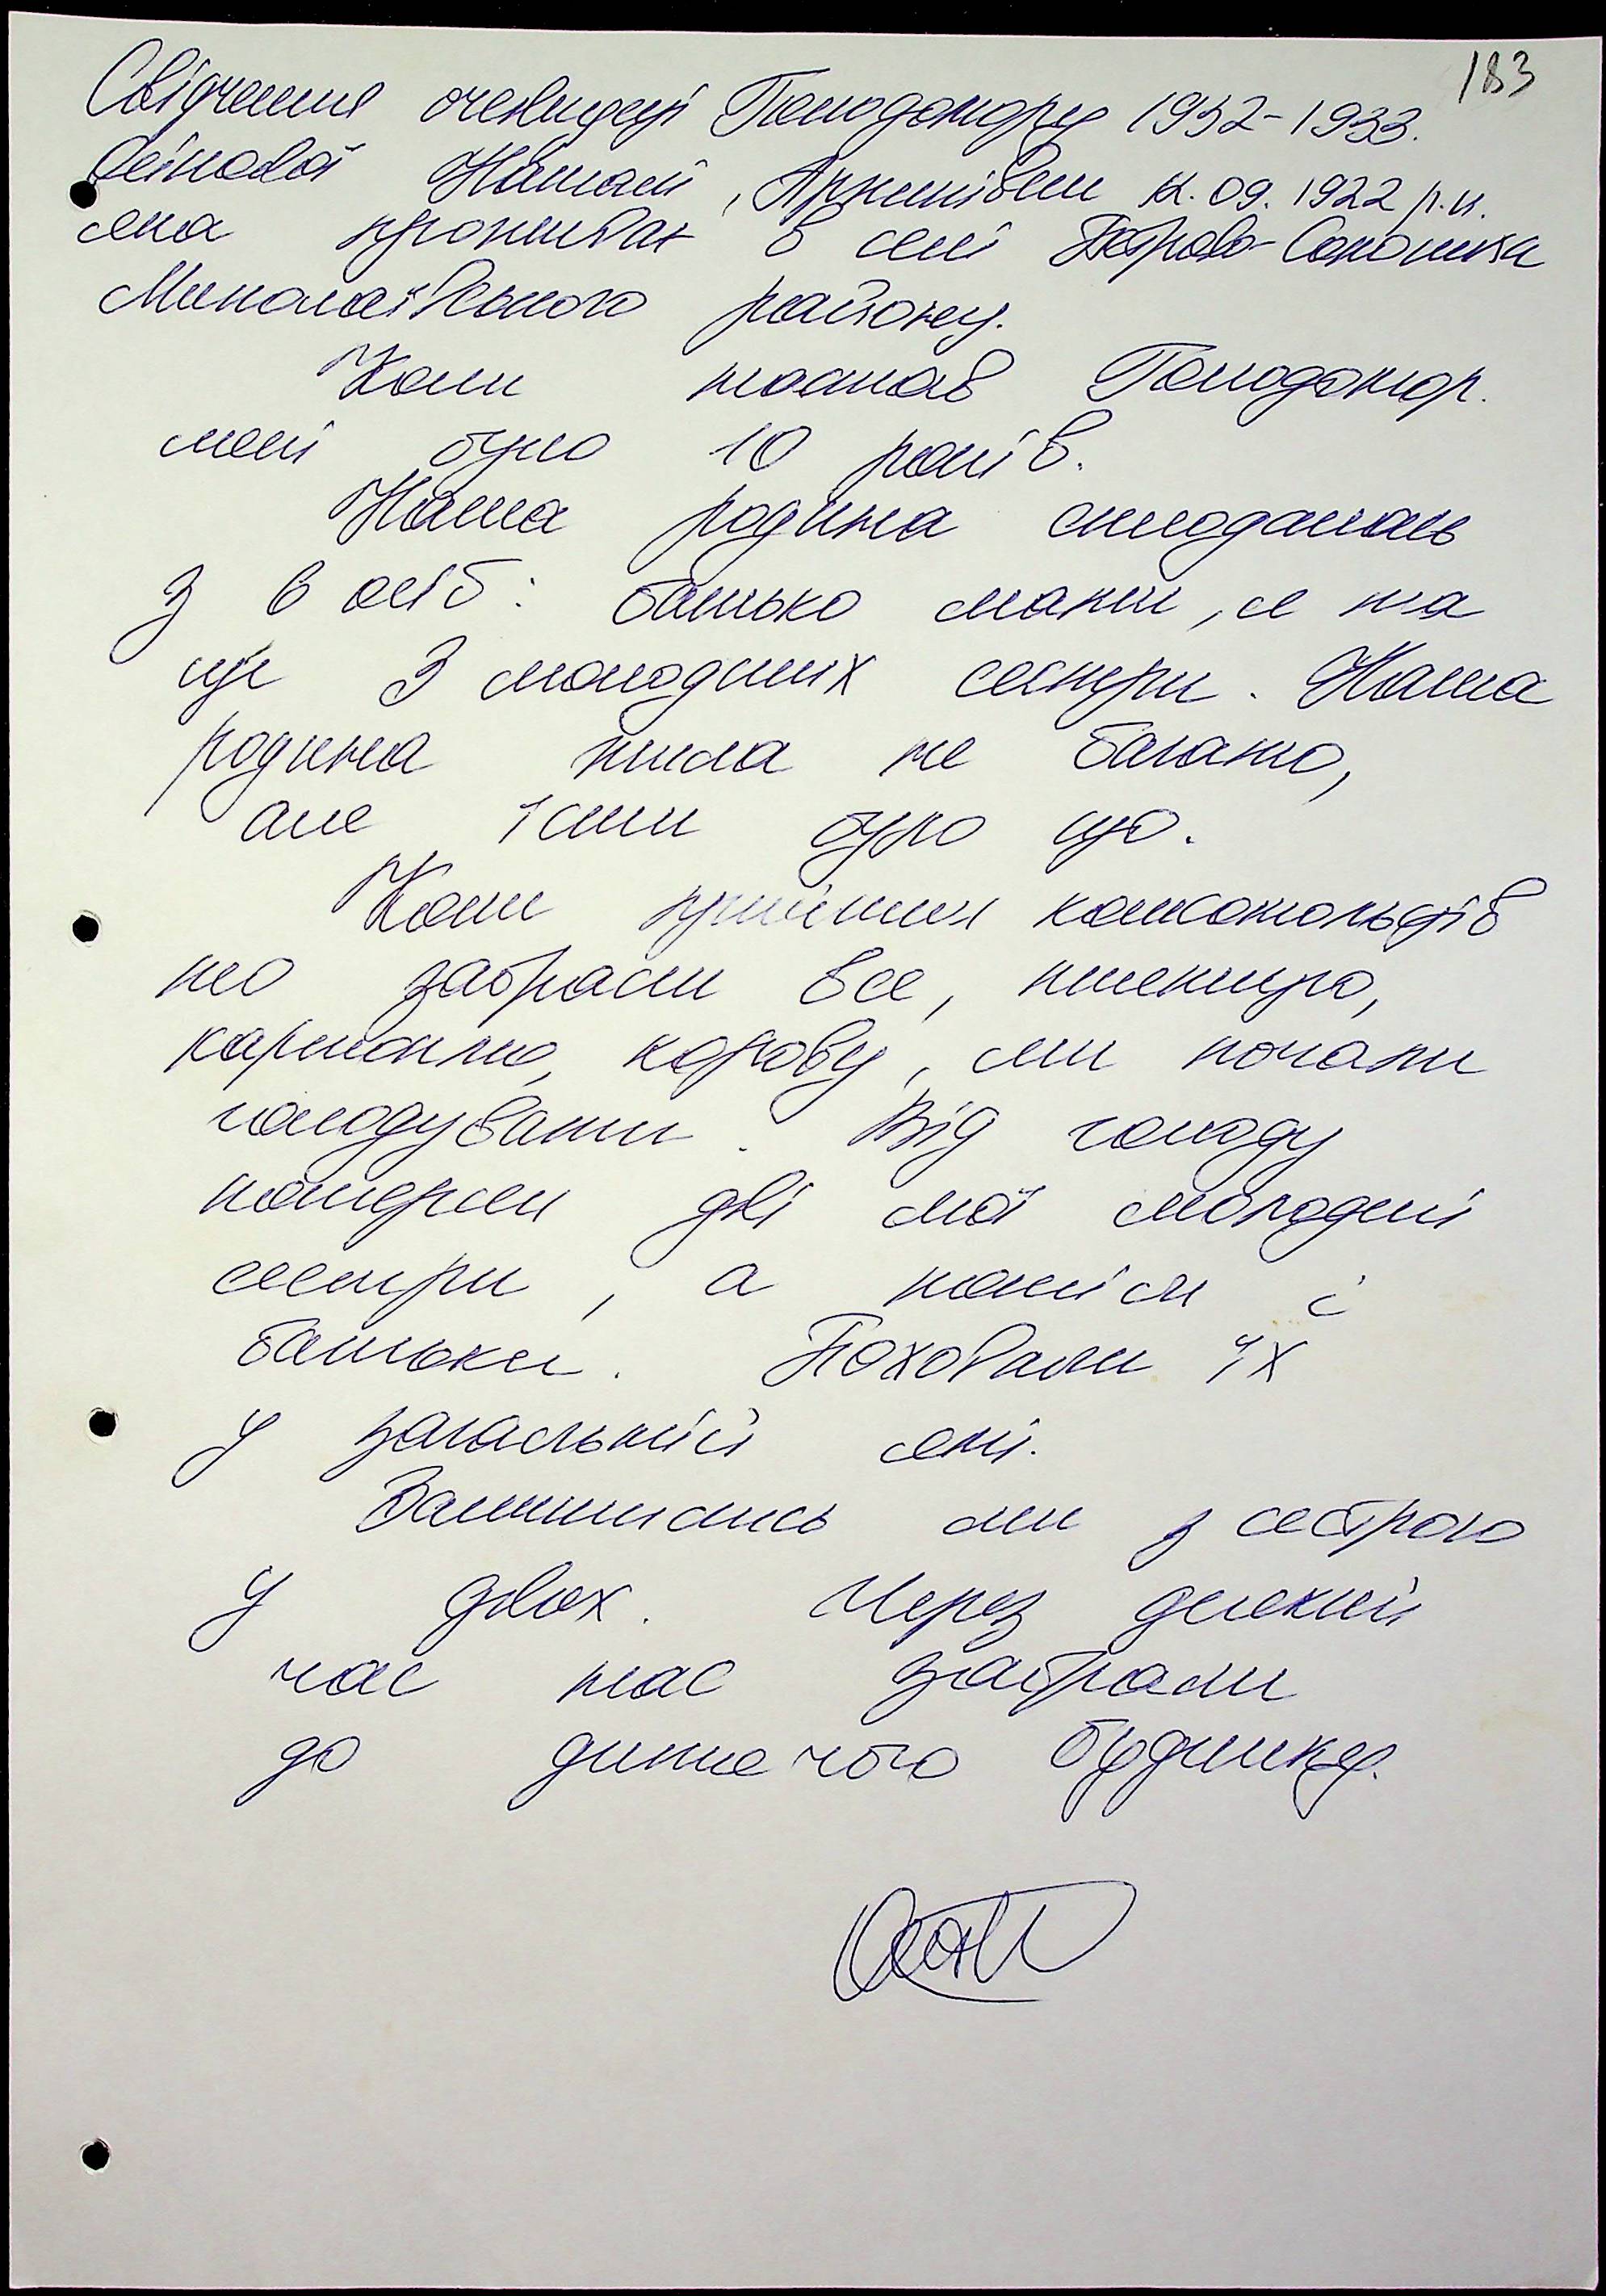 183
Свідчення очевидці Голодомору 1932-1933.
Наталі Архипівни 09. 1922 р.н.
яка проживає в селі Петрово-Солониха
Миколаївського району.
Коли настав Голодомор.
мені було 10 років.
Наша родина складалась
з 6 осіб: батько мати, я та
ще 3 молодших сестри. Наша
родина жила не багато,
але їсти було що.
Коли прийшли
забрали все, пшеницю,
картоплю, корову, ми почали
голодувати. Від голоду
померли дві мої молодші
сестри, а потім і
батьки. Поховали їх
у загальній ямі.
Залишились ми з сестрою
у двох. Через деякий
час нас забрали
до дитячого будинку.